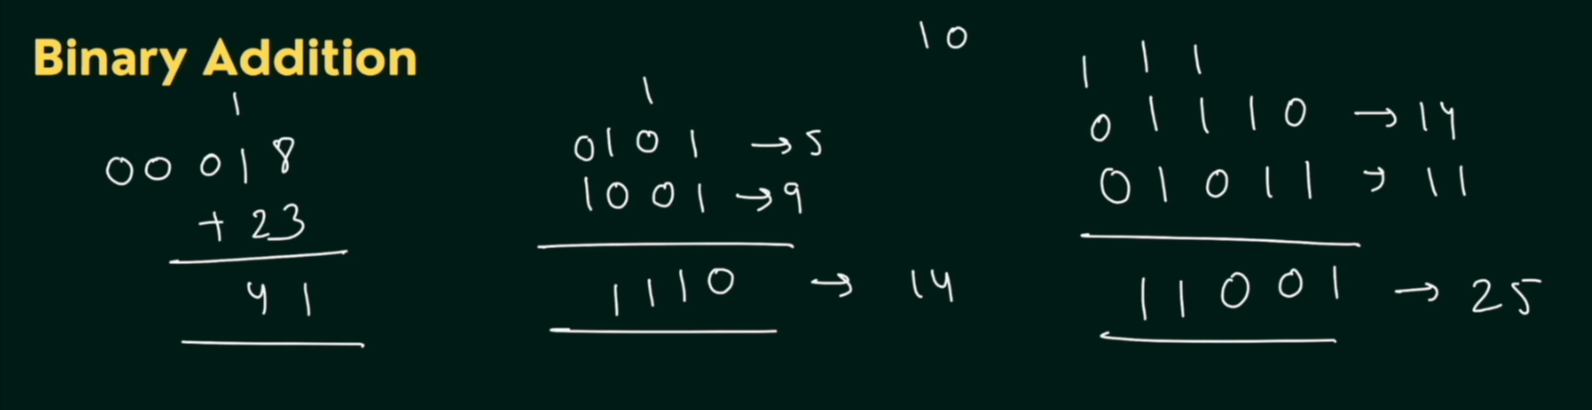 Binary Addition
10
1
00018
+ 23
41
1
0101 → 5
1001 → 9
1110 → 14
1 1 1
01110 → 14
01011 → 11
11001 → 25